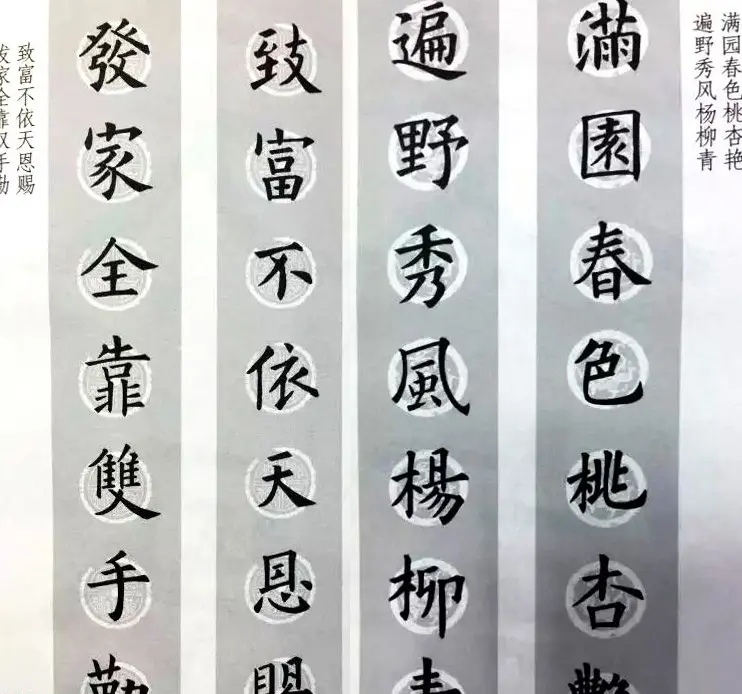 满园春色桃杏艳
遍野秀风杨柳青
滿園春色桃杏艷
遍野秀風楊柳青
致富不依天恩賜
發家全靠雙手勤
致富不依天恩赐
发家全靠双手勤